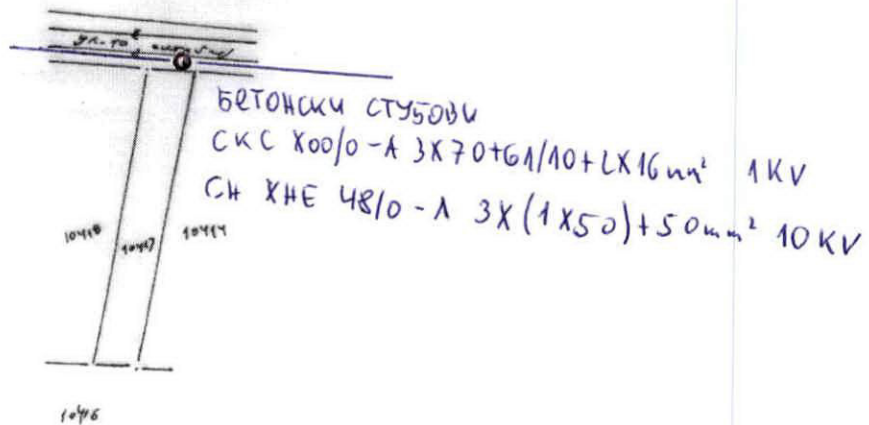 БЕТОНСКИ СТУБОВИ
СКС Х00/0-А 3Х70+61/10+2Х16mm² 1KV
СН ХНЕ 48/0-А 3Х(1Х50)+50mm² 10KV
10418
10417
10414
10416